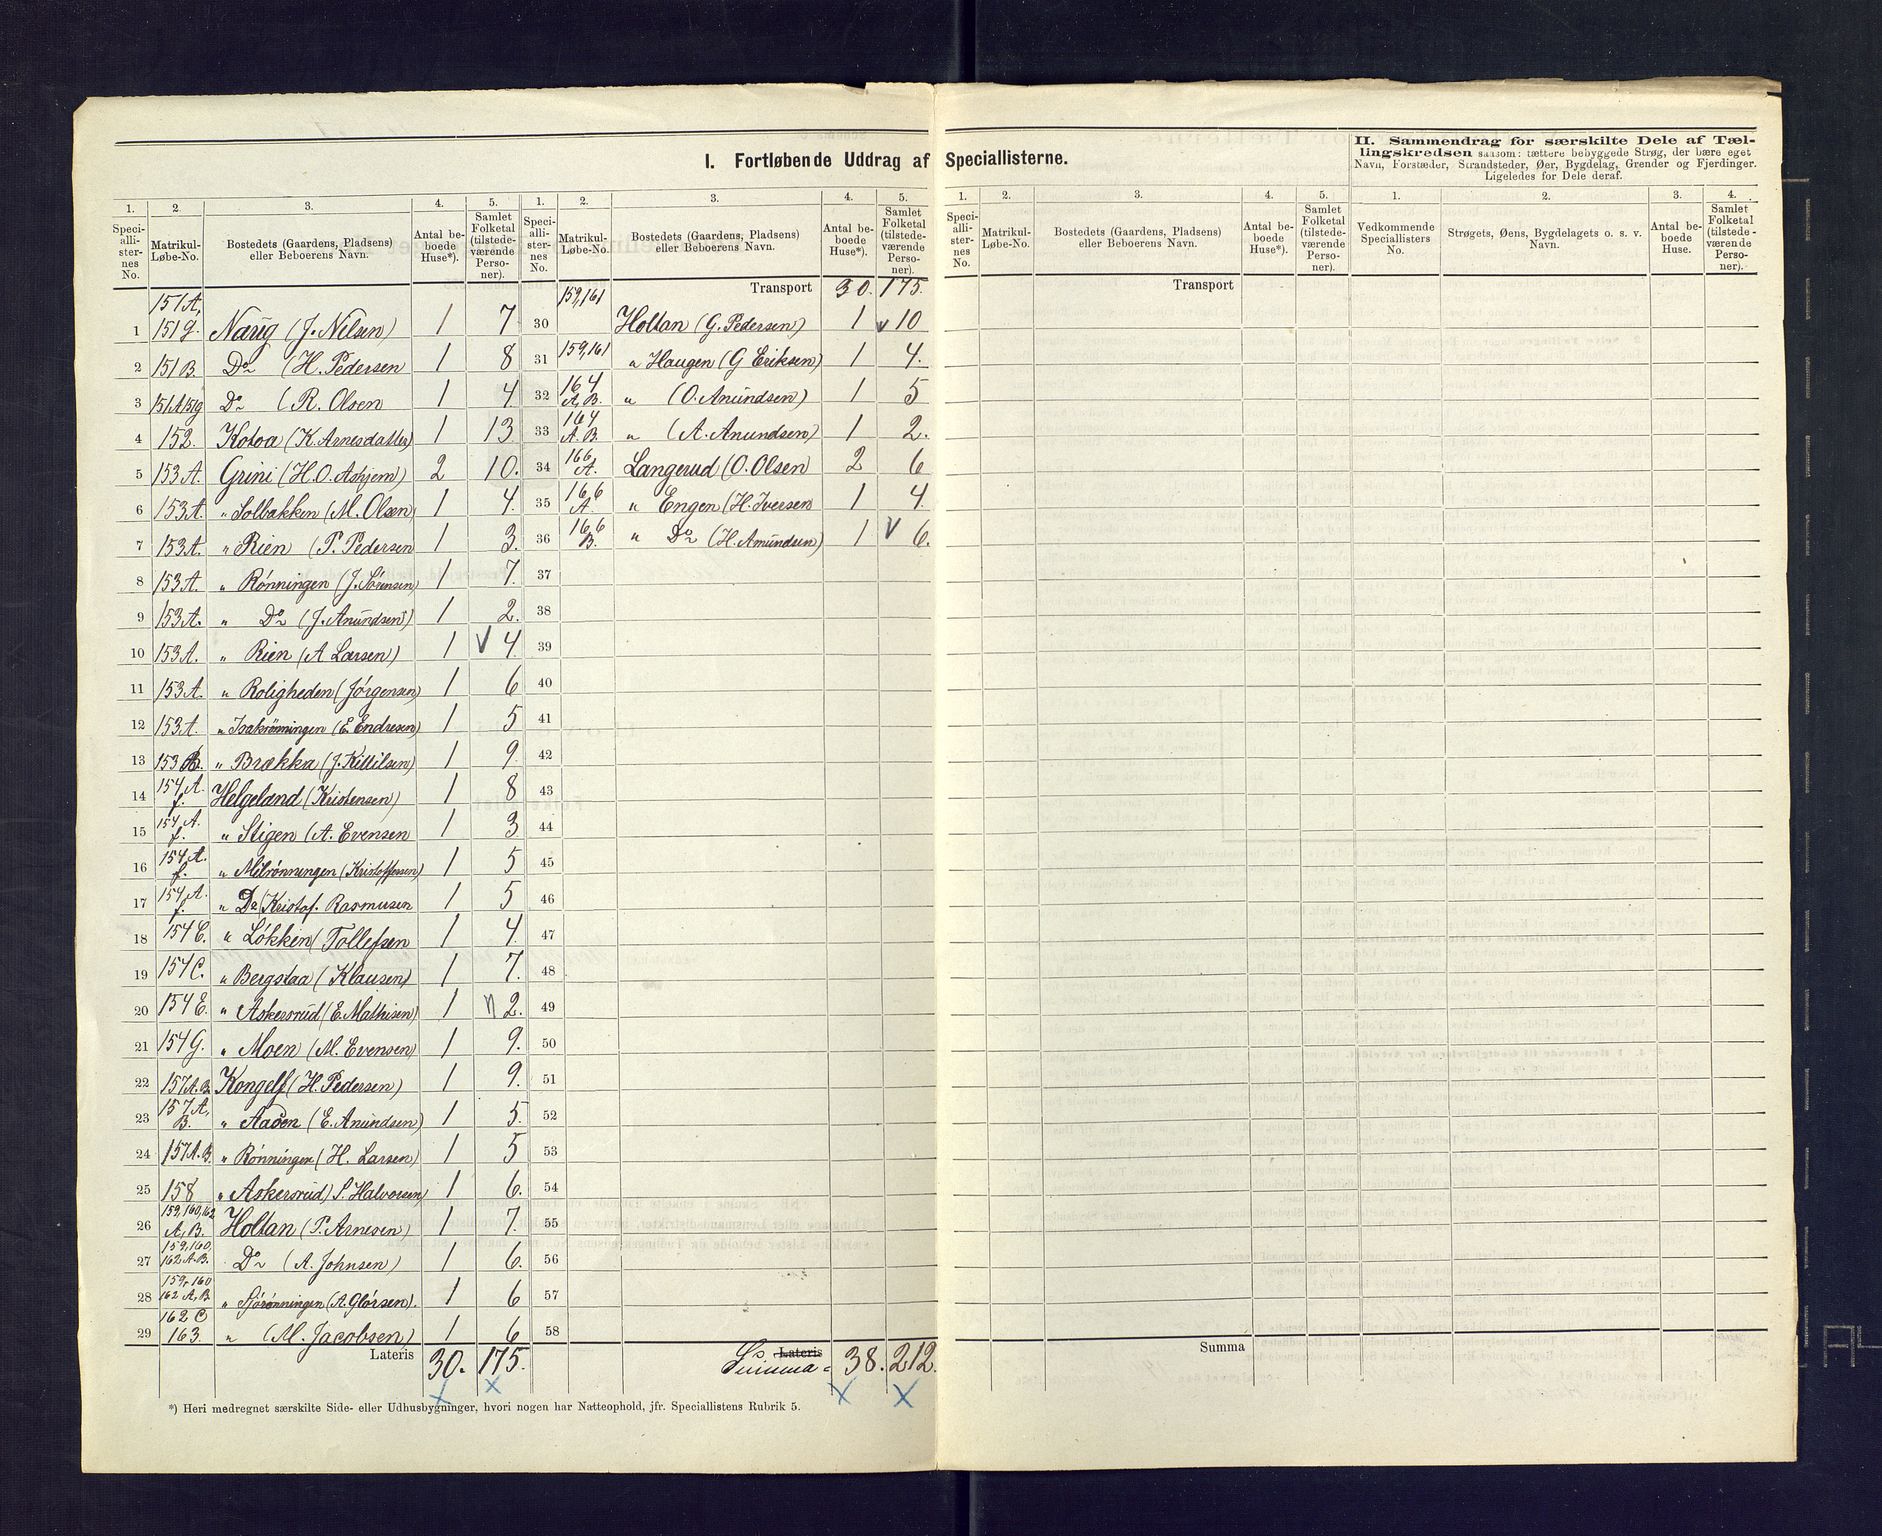 I. Fortløbende Uddrag af Speciallisterne.
II. Sammendrag for særskilte Dele af Tæl-
lingskredsen saasom: tættere bebyggede Strøg, der bære eget
Navn, Forstæder, Strandsteder, Øer, Bygdelag, Grender og Fjerdinger.
Ligeledes for Dele deraf.
1. 2. 3. 4. 5. 1. 2. 3. 4. 5. 1. 2. 3. 4. 5. 1. 2. 3. 4.
Speciallisternes No. Matrikul-Løbe-No. Bostedets (Gaardens, Pladsens) eller Beboerens Navn. Antal beboede Huse*). Samlet Folketal (tilstedeværende Personer).
Speciallisternes No. Matrikul-Løbe-No. Bostedets (Gaardens, Pladsens) eller Beboerens Navn. Antal beboede Huse*). Samlet Folketal (tilstedeværende Personer).
Speciallisternes No. Matrikul-Løbe-No. Bostedets (Gaardens, Pladsens) eller Beboerens Navn. Antal beboede Huse*). Samlet Folketal (tilstedeværende Personer).
Vedkommende Speciallisters No. Strøgets, Øens, Bygdelagets o. s. v. Navn. Antal beboede Huse. Samlet Folketal (tilstedeværende Personer).
1 151A, 151g. Narig (J. Nelsen) 1 7
2 151B. Do (H. Pedersen 1 8
3 151A 151g Do (R. Olsen 1 4
4 152. Kotoa (K. Arnesdatter) 1 13
5 153A. Grini (H. O. Askjem) 2 10.
6 153A. " Solbakken (M. Olsen) 1 4.
7 153A. " Rien (P. Pedersen 1 3.
8 153A. " Rønningen (J. Sørensen) 1 7.
9 153A. " Do (J. Anundsen) 1 2.
10 153A. " Rien (A Larsen) 1 V 4.
11 153A. " Roligheden (Jørgensen) 1 6
12 153A. " Isakrønningen (E. Endresen) 1 5
13 153B. " Brækka (J. Kittilsen) 1 9.
14 154,A. f. Helgeland (Kristensen) 1 8
15 154,A. f. " Stigen (A. Evensen 1 3
16 154,A. f. " Melrønningen (Kristoffersen) 1 5
17 154,A. f. " Do (Kristof. Rasmusen 1 5
18 154C. " Løkken (Tollefsen 1 4.
19 154C. " Bergstaa (Klausen) 1 7.
20 154E. " Askersrud (E. Mathisen) 1 2.
21 154G. " Moen (M. Evensen) 1 9.
22 157A.B. Kongelf (H. Pedersen) 1 9.
23 157A, B. " Aasen (E. Anundsen) 1 5.
24 157A.B. " Rønningen (H. Larsen) 1 5
25 158 " Askersrud) S. Halvorsen) 1 6.
26 159,160,162 A,B. Holtan (P. Arnesen) 1 7.
27 159,160, 162A.B. Do (A. Johnsen) 1 6.
28 159,160 162A,B " Sjørønningen (A. Glørsen). 1 6
29 162C 163. " (M. Jacobsen) 1 6
Lateris 30. 175.
Transport 30. 175.
30 159,161 Holtan (G. Pedersen) 1 v 10
31 159,161 " Haugen (G Eriksen) 1 4.
32 164 A,B. " (O. Anundsen) 1 5
33 164 A.B. " (A. Anundsen) 1 2.
34 166 A. Langerud (O. Olsen 2 6
35 166 A. " Engen (H. Iversen 1 4
36 166 B. " Do (H. Amundsen) 1 V 6.
37
38
39
40
41
42
43
44
45
46
47
48
49
50
51
52
53
54
55
56
57
58
Lateris
Summa 38. 212.
Transport
Summa
*) Heri medregnet særskilte Side- eller Udhusbygninger, hvori nogen har Natteophold, jfr. Speciallistens Rubrik 5.